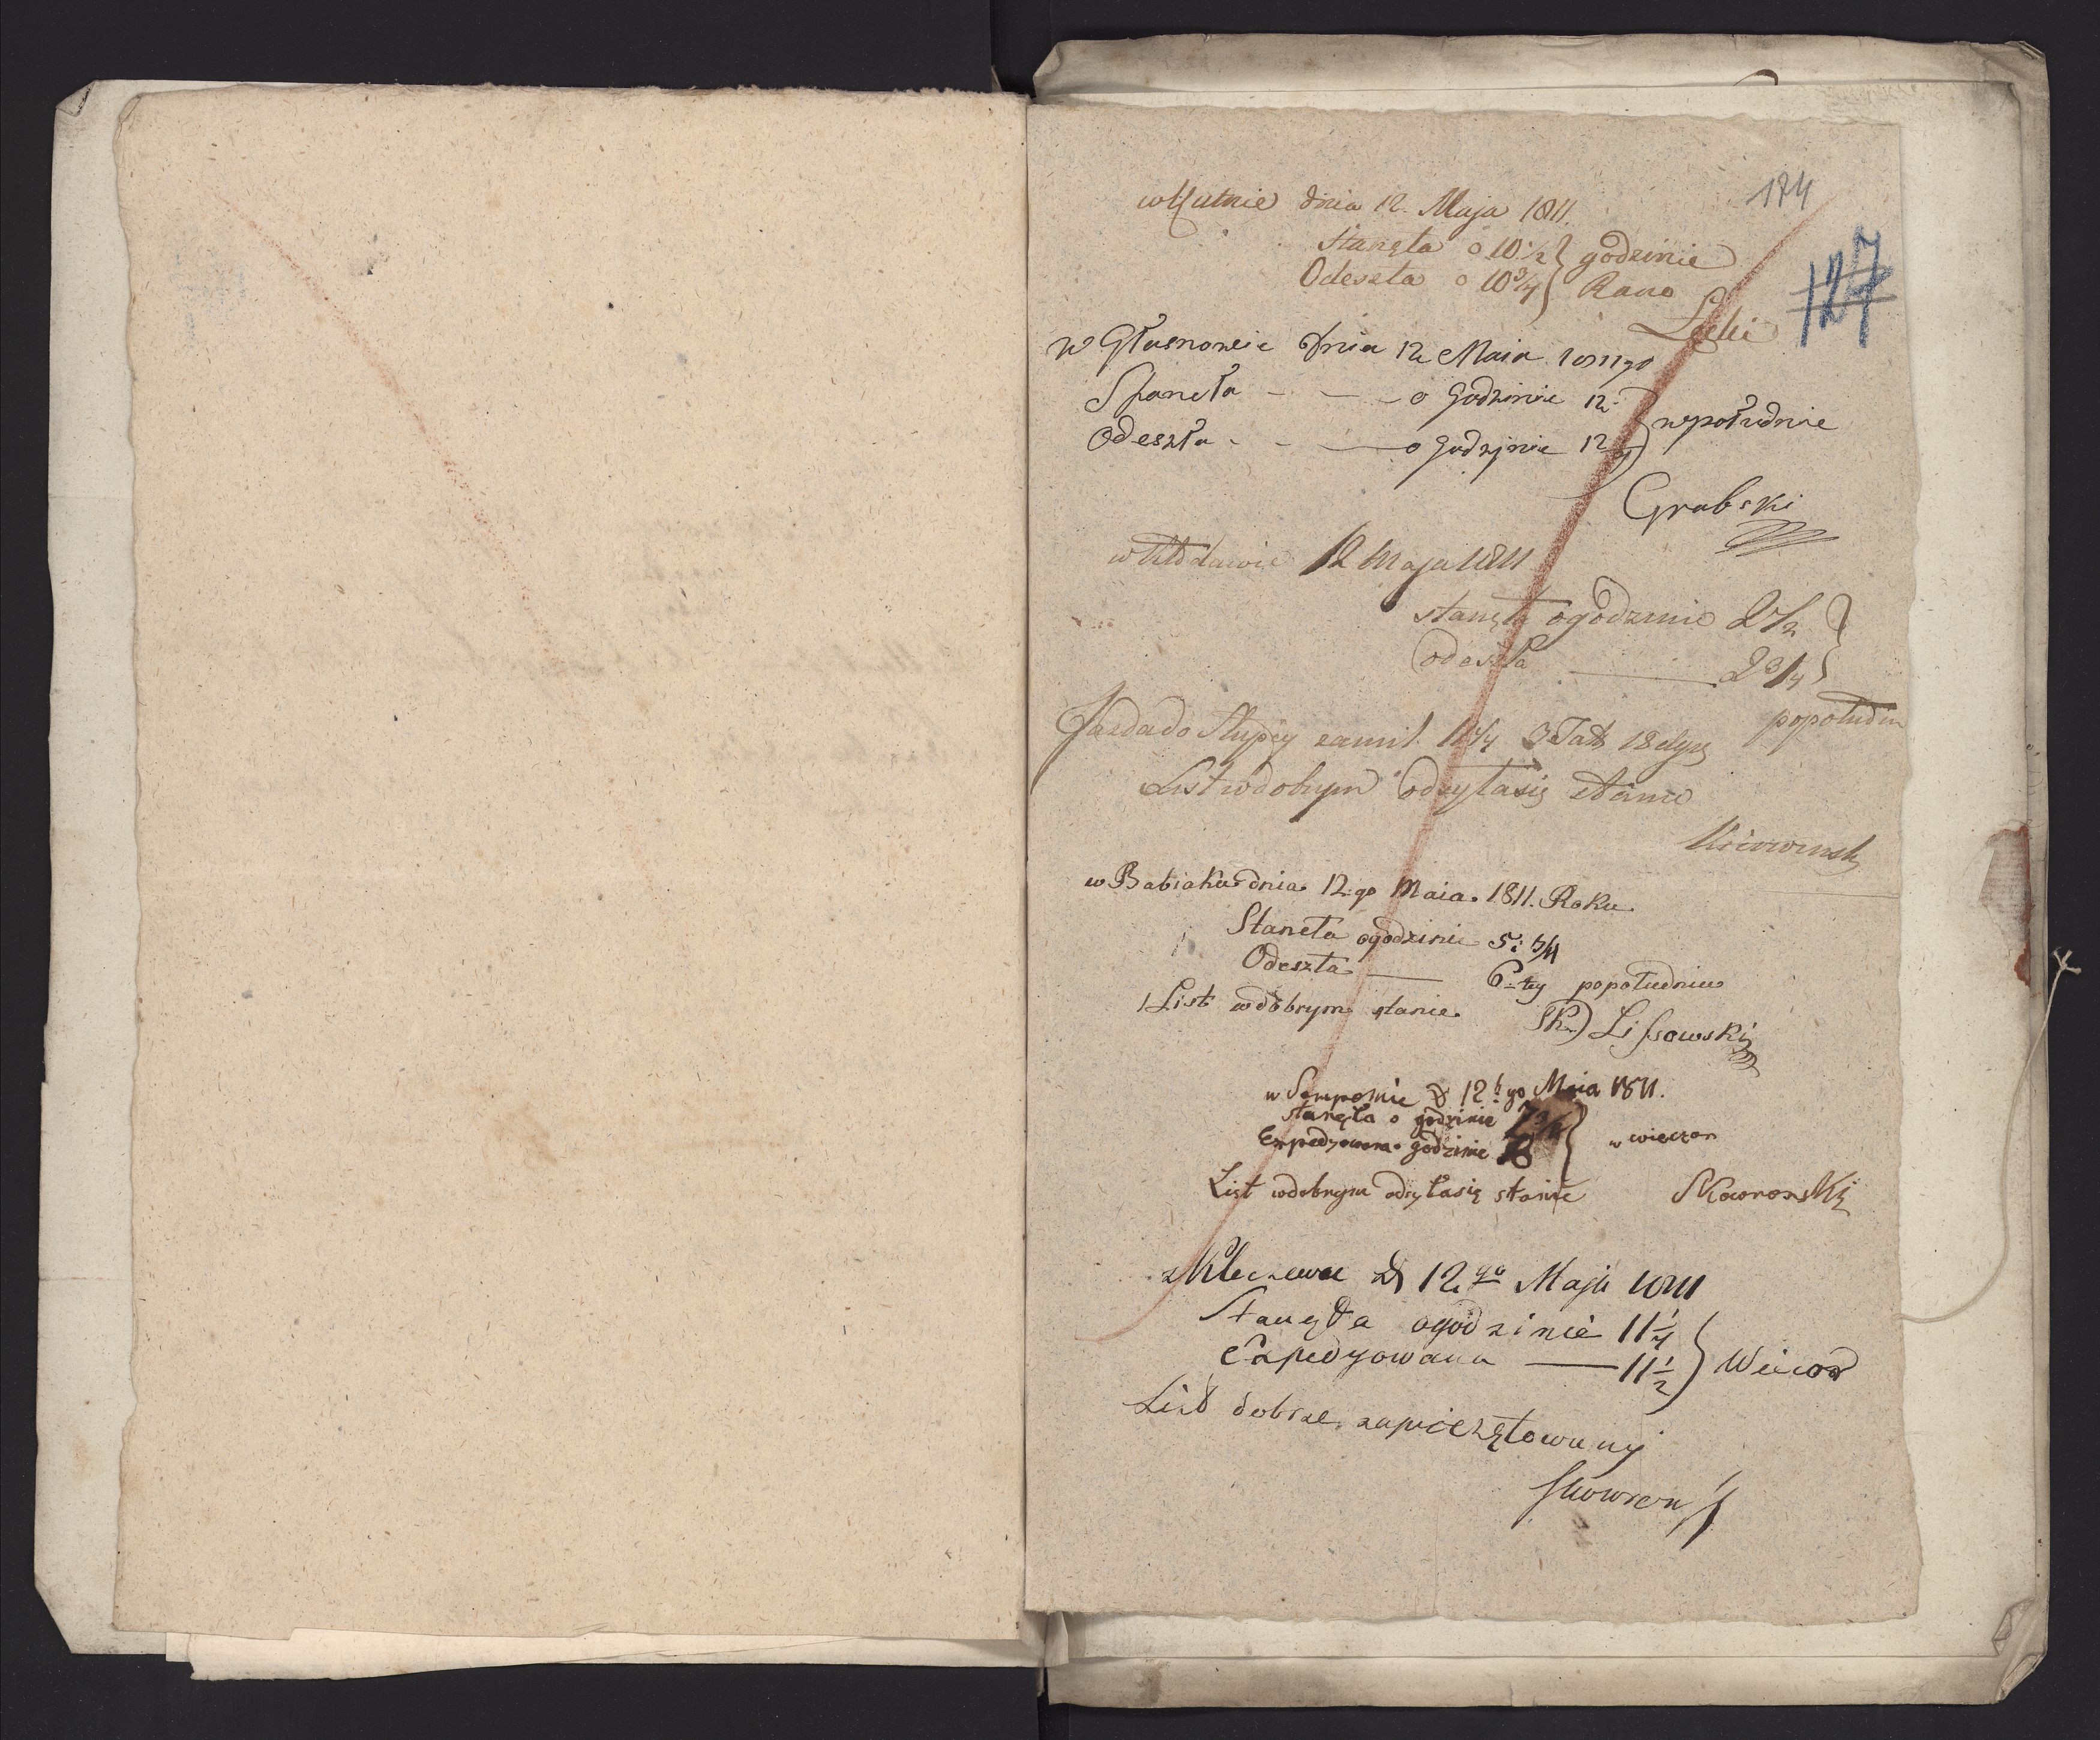 174
127
w Kutnie dnia 12. Maja 1811.
Stanęła o 10 1/2 } godzinie
Odeszła o 10 3/4 } Rano
w Głasnowie Dnia 12 Maia 1811go
Staneła - - - o Godzinie 12 } wpołudnie
Odeszła - - - o Godzinie 12
Grabski
w Kłodawie 12 Maja 1811
stanęła ogodzinie 2 1/2 }
odeszła ——— 2 3/4 }
popołudniu
Jazda do Słupcy zamil. 18
List wdobrym odsyłasię stanie
w Babiaku dnia 12go Maia 1811. Roku
Staneła ogodzinie 5: 3/4
Odeszła —— 6-tey popołudniu
List wdobrym stanie
Lissowski
w Sempolnie d 12go Maia 1811.
stanęła o godzinie 7 3/4 } w wieczor
Expedyowana godzinie 8
List wdobrym odsyłasię stanie
Skowroński
z Kleczewa d 12go Maja 1811
Stanęła ogodzinie 11 1/4 } Wieczor
Expedyowana —— 11 1/2
List dobrze zapieczętowany